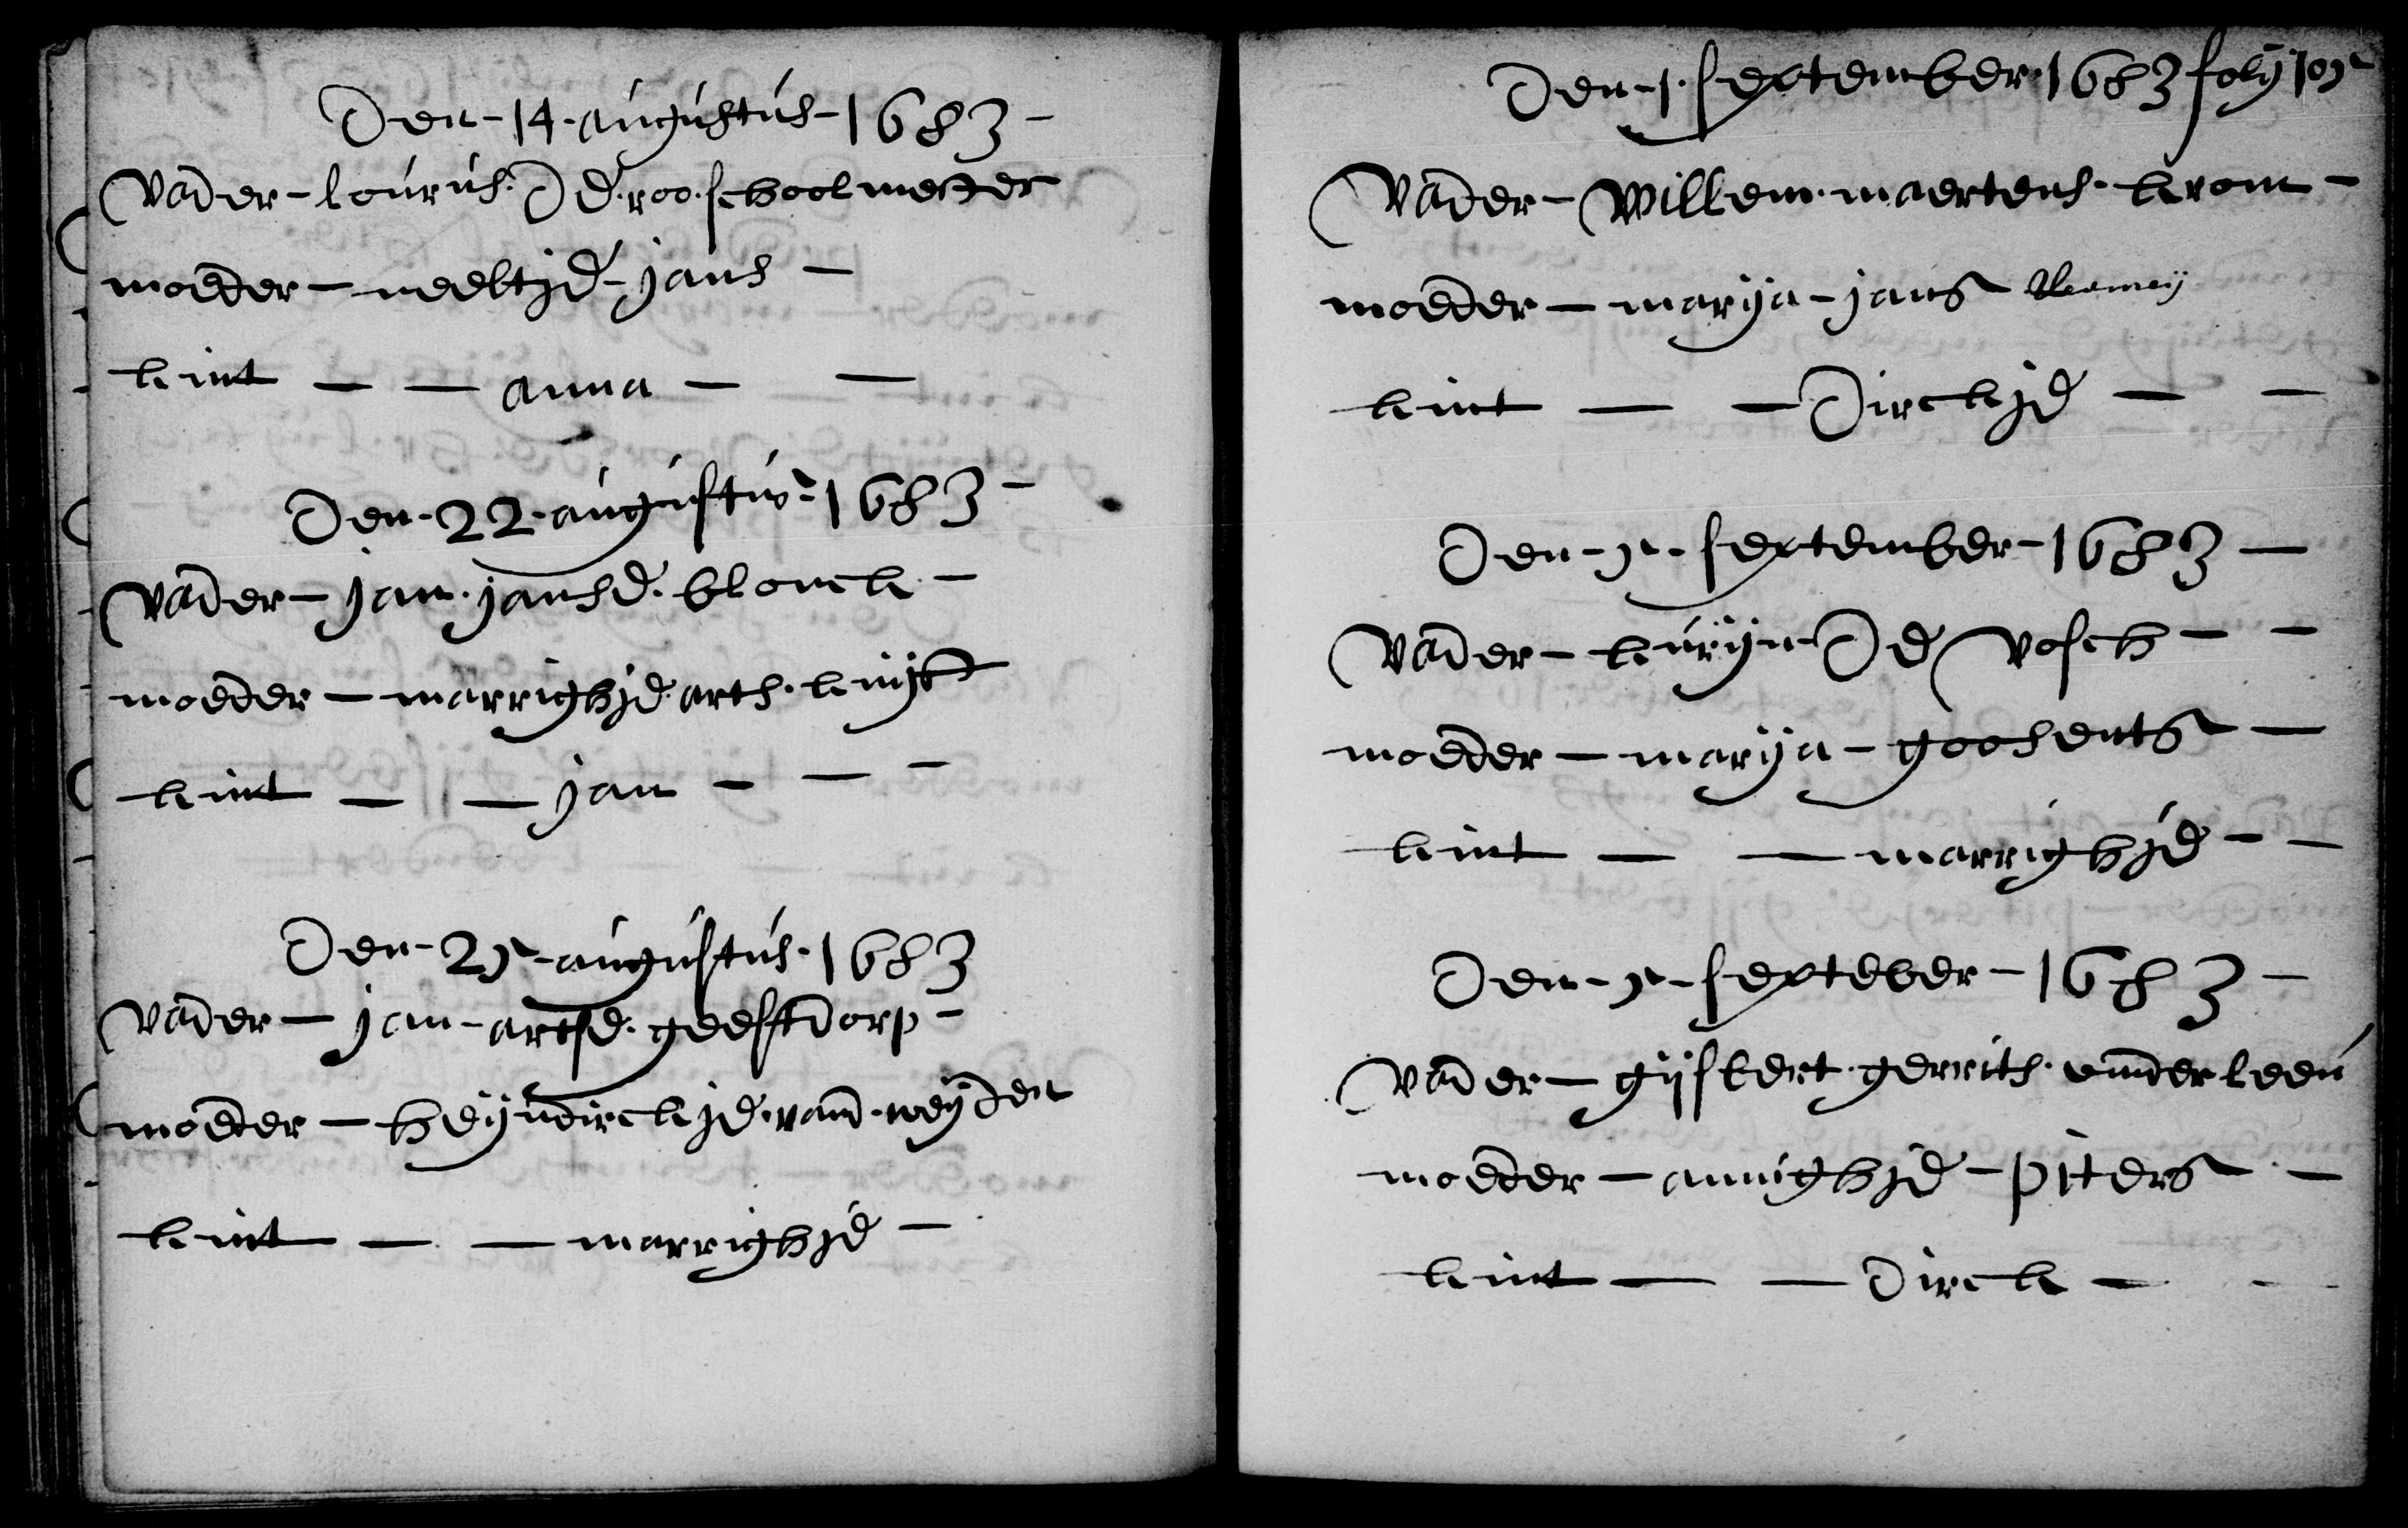 Den - 14 - augustus - 1683 -
Vader - lourus. De. roo. schoolmester
moeder - neeltje - jans -
kint - - anna - -
Den - 22 - augustus - 1683 -
Vader - jan. janse. blonck -
moeder - marrighje. arts. kuijf
kint - - jan - - -
Den - 25 - augustus. 1683
Vader - jan - artse. geestdorp -
moeder - heijndirckje. vand. weijden
kint - - marrighje -
Den - 1. september. 1683 folij 105
Vader - Willem. maertens. krom -
moeder - marija - jans
kint - - Dirckje - -
Den - 5 - september - 1683 -
Vader - kurijn De Vosch - -
moeder - marija - goosents -
kint - - marrighje - -
Den - 5 - septeber - 1683 -
Vader - gijsbert. gerrits. vander leeu
moeder - annighje - piters -
kint - - Dirck - -